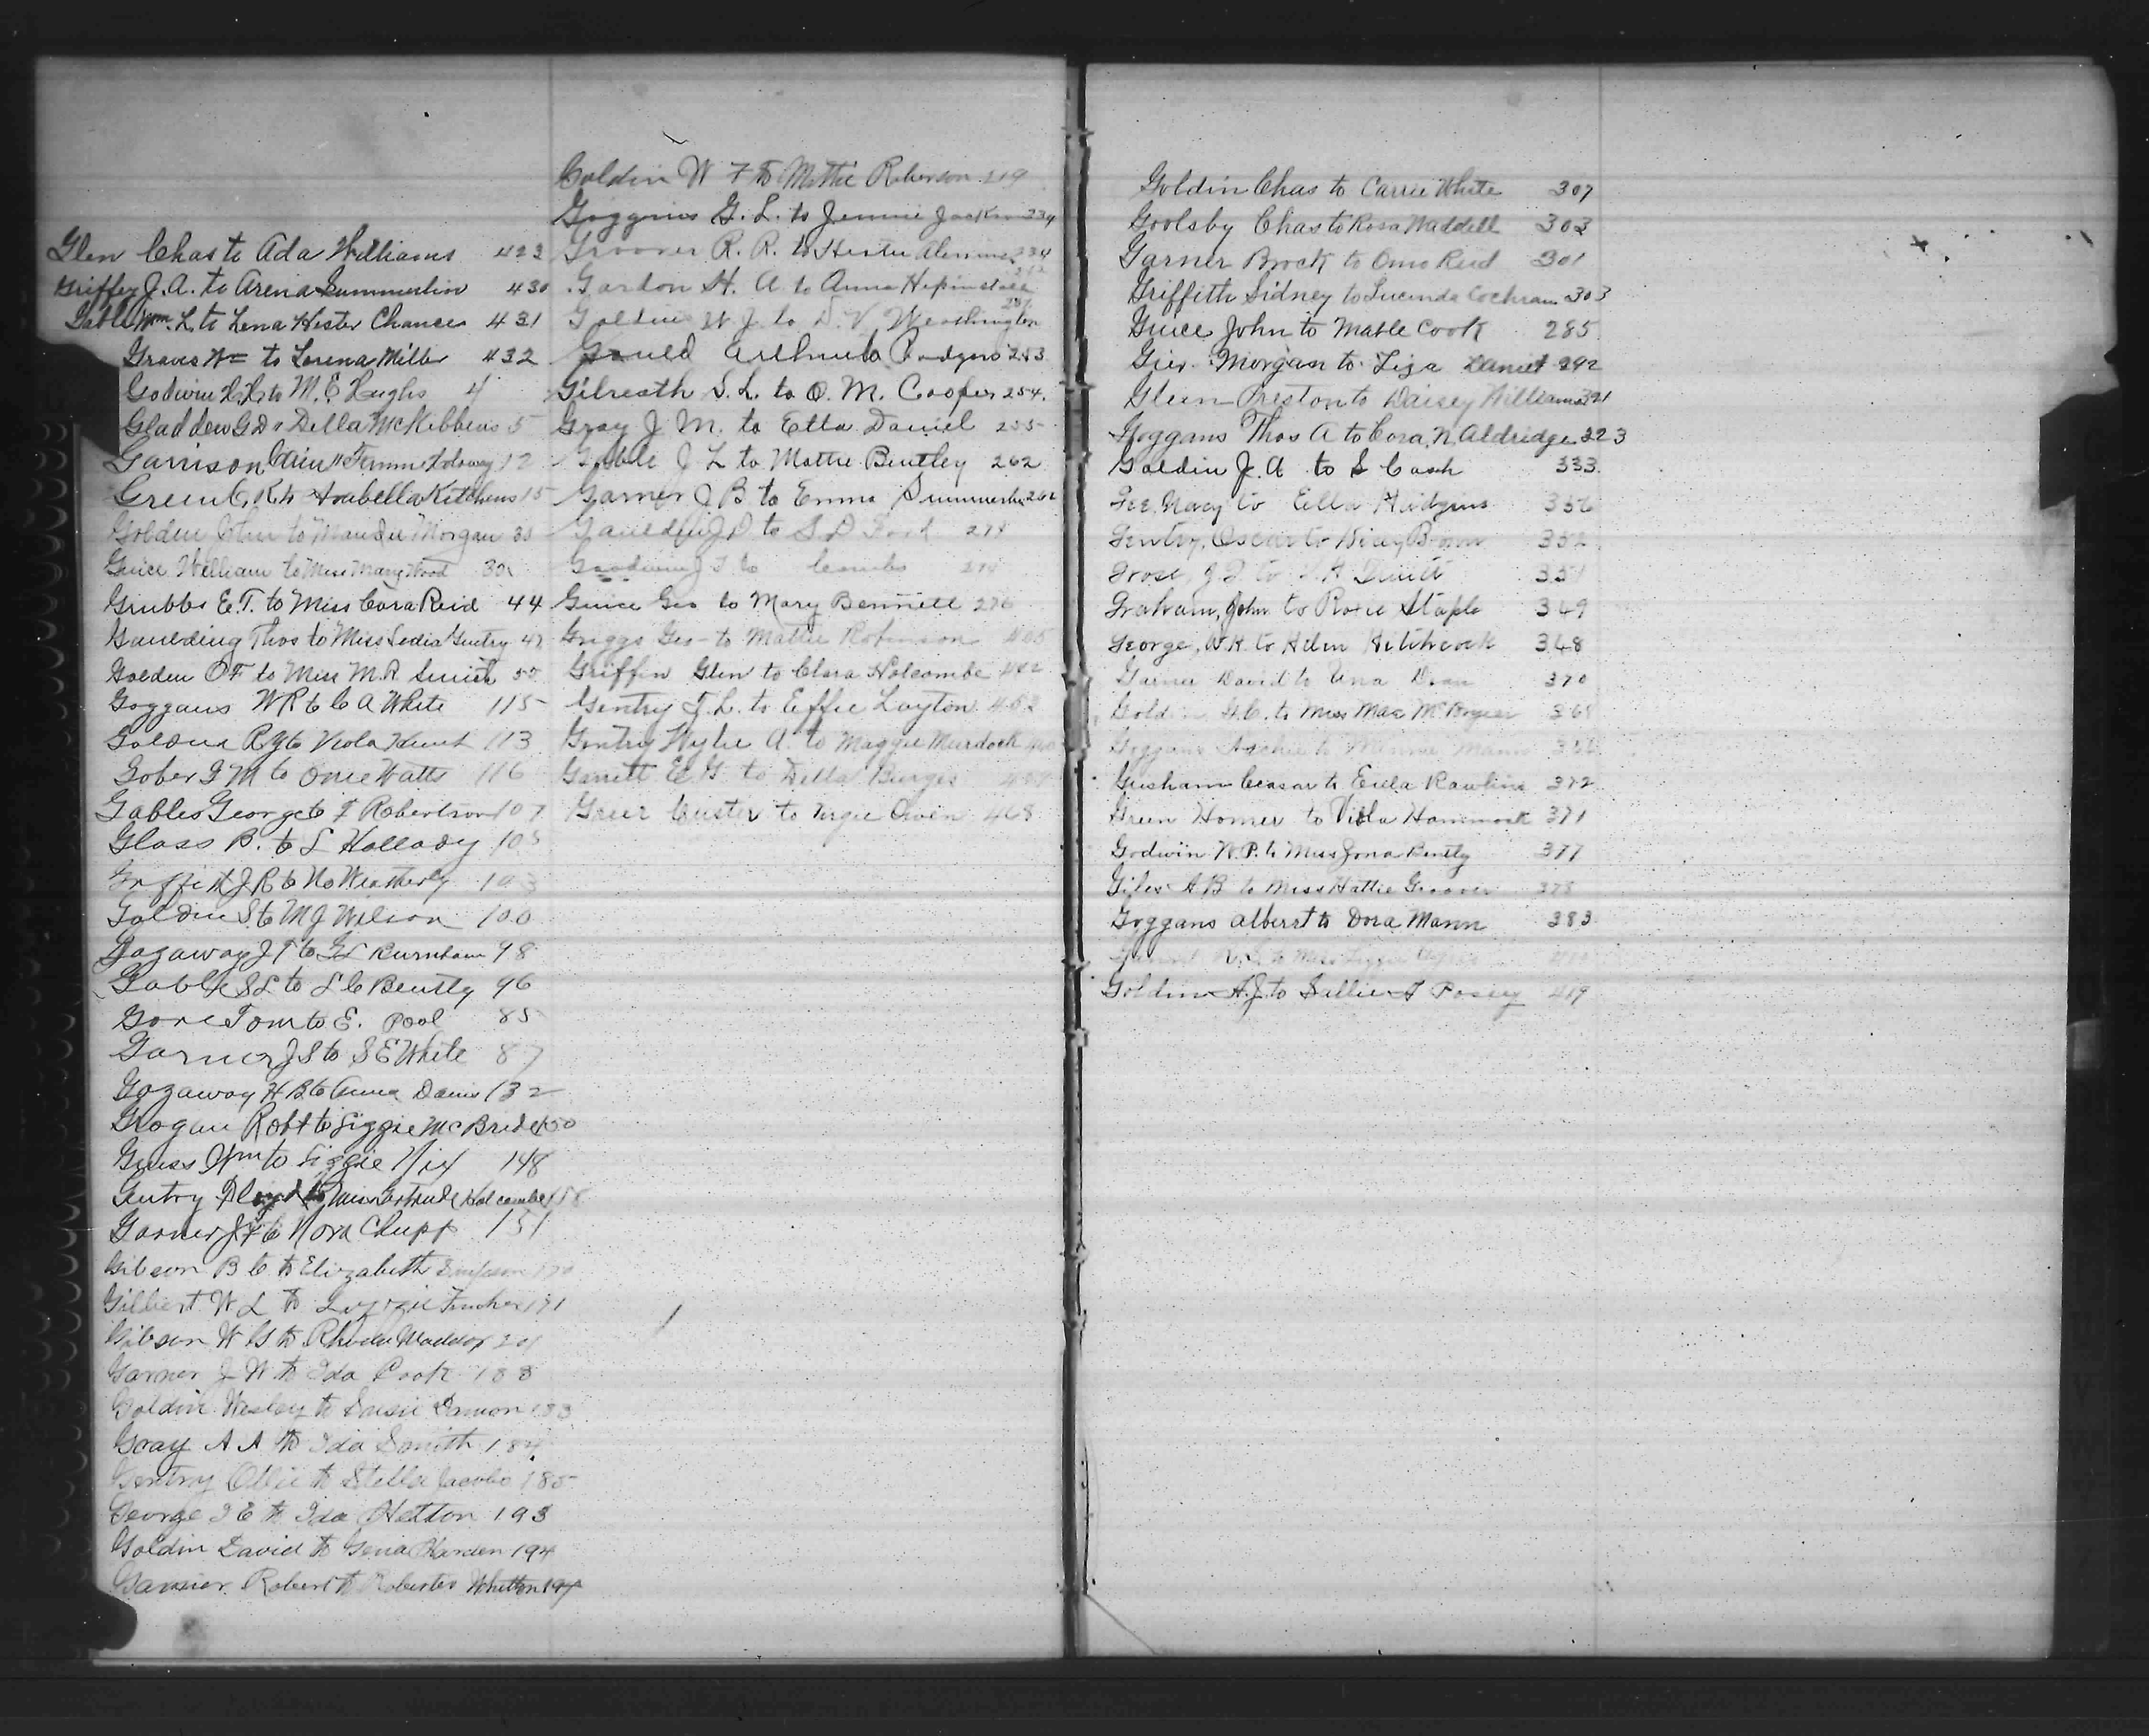 Glen Chas to Ada Williams 423
Griffey J. A. to Arena Summerlin 430
Gable Wm. L. to Lena Hester Chance 431
Graves Wm to Lorena Miller 432
Godwin to M. E. Hughs 4
Gladden G D " Della McKibbens 5
Garrison " 12
Green C. R. to Arabella Kitchens 15
Golden to Maudie Morgan
Guice William to Miss Mary Wood 30
Grubbs E. T. to Miss Cora Reid 44
Gaulding Thos to Miss Gentry
Golden O F to Miss M. R. Smith 55
Goggans W R to C A White 115
Goldin R Y to Viola Hunt 113
Gober G M to Onie Watts 116
Gables George to F Robertson 107
Glass B. to L Hollady 105
J R to Weatherly 103
Goldin S to M J Wilson 100
Gazaway J T to Burnham 98
Gable S L to L C Bently 96
Gore Tom to E. Pool 85
Garner J S to S E White 87
Gazaway H B to Anna Davis 132
Grogan Robt to Lizzie McBride 150
Guess Wm to Lizzie Nix 148
Gentry to Miss Gertrude Holcombe 158
Garner J F to Nora Chupp 151
Gibson B C to Elizabeth Simpson 170
Gilbert W L to Fincher 171
Gibson W G to Rhoda Maddox 201
Garner J W to Ida Cook 188
Goldin Wesley to Susie Damon 183
Gray A A to Ida Smith 184
Gentry Ollie to Stella Jacobs 185
George J E to Ida Hetton 193
Goldin David to Gena Harden 194
Robert to Roberter Whitten 197
Goldin W F to Mattie Roberson 219
Goggins G. L. to Jennie Jackson 234
Groover R. R. to Hester 234
Gordon H. A to Anna Hepinstall
Goldin W J. to D. V. Worthington
Gould Arthur to Rodgers 253
Gilreath S. L. to O. M. Cooper 254.
Gray J M. to Etta Daniel 255
Gable J L to Mattie Bentley 262
Garner J B to Emma Summerlin 262
J D to S D
Goodwin J T to Combs
Guice Geo to Mary Bennett 276
Griggs Geo to Mattie Robinson
Griffin Glen to Clara Holcombe
Gentry J. L. to Effie Layton 453
Gentry Wylie A. to Maggie Murdock
Garrett E. G. to Della Burges
Greer Custer to Virgie Owen 468
Goldin Chas to Carrie White 307
Goolsby Chas to Rosa Waddell 303
Garner Brock to Omo Reid 301
Griffith Sidney to Lucinda Cochran 303
Guice John to Mable Cook 285
Morgan to Liza Daniel 292
Glenn Preston to Daisey Williams 321
Goggans Thos A to Cora N. Aldridge 323
Goldin J. A to S Cash 333
Gee, to Ella Hudgins 356
Gentry, Oscar to Brown 352
351
Graham, John to Roxie Staple 349
George, W. H. to Hitchcock 348
Garner David to Una Dean 370
to Miss Mae
Goggans Archie to Minnie Mann
Gresham Ceasar to Eulla Rawlins 372
Green Homer to Viola Hammock 371
Godwin W. P. to Miss Jona Bently 377
Giles A B to Miss Hattie Groover 378
Goggans Alberst to Dora Mann 383
to Miss Lizzie
Goldin A. J. to Sallie T Posey 419